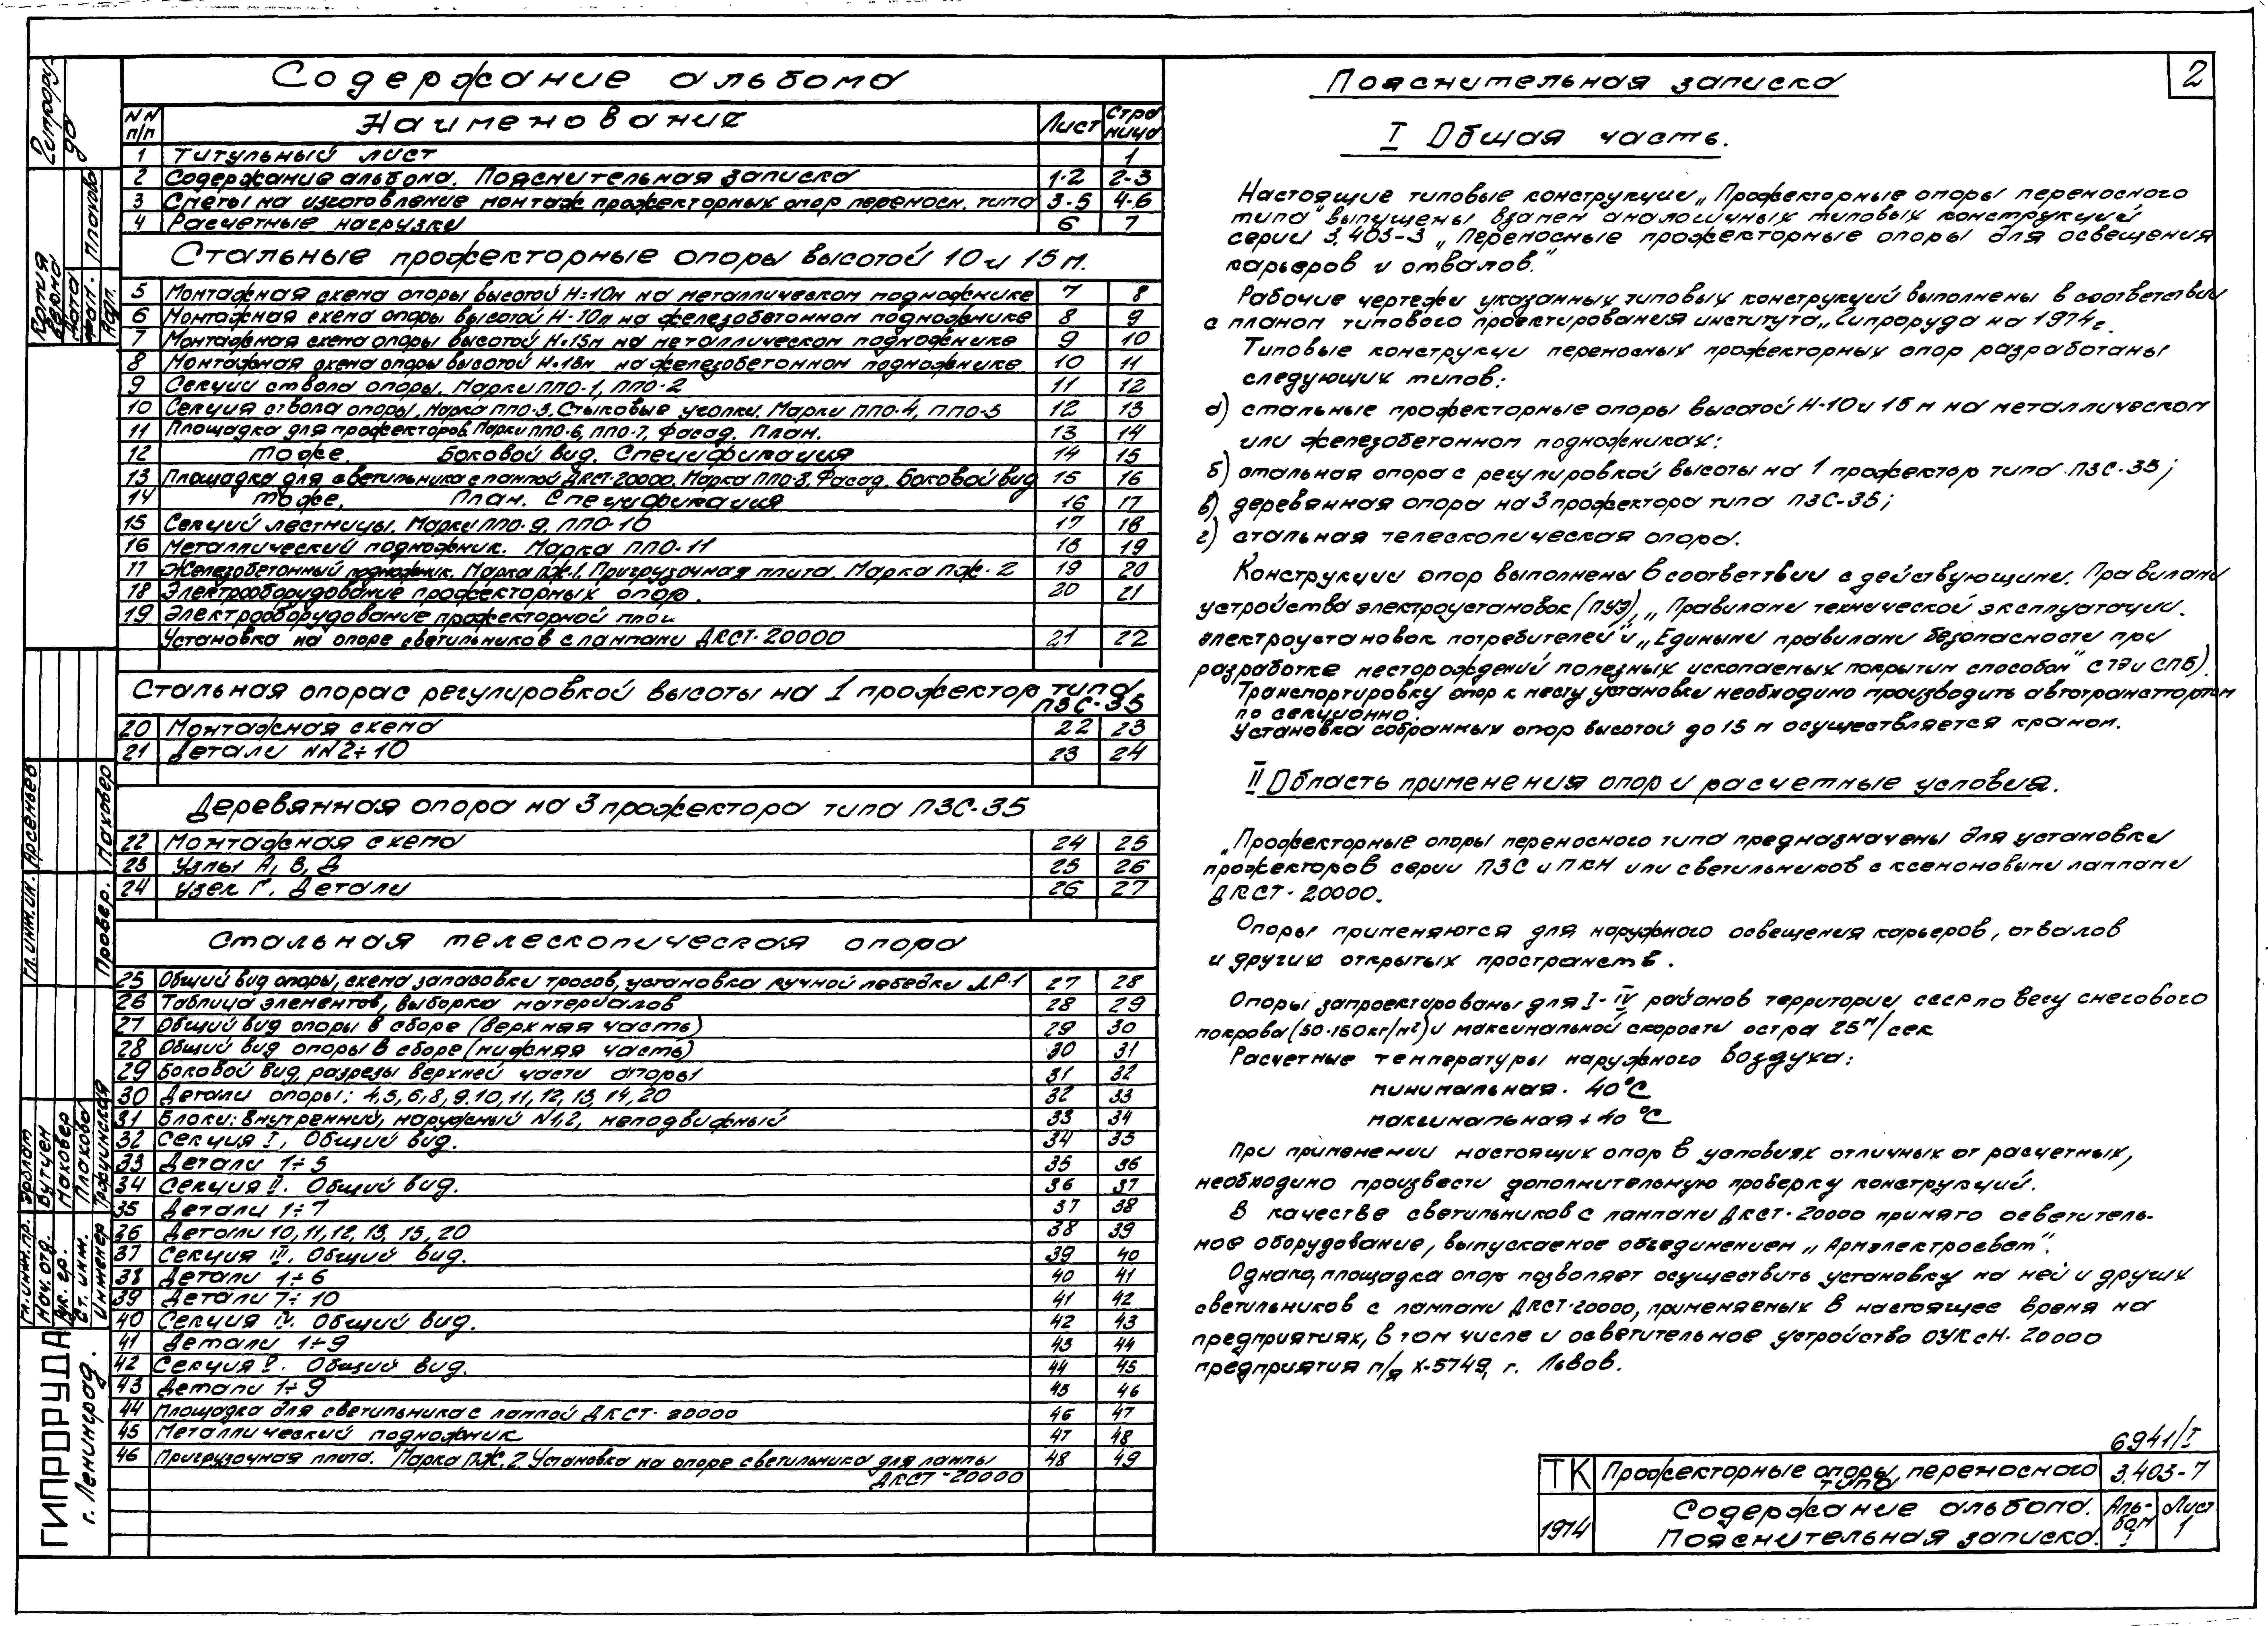 Содержание альбома
NN п/п Наименование Лист Страница
1 Титульный лист 1
2 Содержание альбома. Пояснительная записка 1-2 2-3
3 Сметы на изготовление монтаж прожекторных опор переносн. типа 3-5 4-6
4 Расчетные нагрузки 6 7
Стальные прожекторные опоры высотой 10 и 15 м.
5 Монтажная схема опоры высотой H=10м на металлическом подножнике 7 8
6 Монтажная схема опоры высотой H-10м на железобетонном подножнике 8 9
7 Монтажная схема опоры высотой H=15м на металлическом подножнике 9 10
8 Монтажная схема опоры высотой H=15м на железобетонном подножнике 10 11
9 Секции ствола опоры. Марки ППО-1, ППО-2 11 12
10 Секция ствола опоры. Марка ППО-3. Стыковые уголки. Марки ППО-4, ППО-5 12 13
11 Площадка для прожекторов. Марки ППО-6, ППО-7, Фасад. План. 13 14
12 Тоже. Боковой вид. Спецификация 14 15
13 Площадка для светильника с лампой ДКСТ-20000. Марка ППО-8. Фасад. Боковой вид 15 16
14 Тоже. План. Спецификация 16 17
15 Секций лестницы. Марки ППО-9, ППО-10 17 18
16 Металлический подножник. Марка ППО-11 18 19
17 Железобетонный подножник. Марка ПЖ-1. Пригрузочная плита. Марка ПЖ-2 19 20
18 Электрооборудование прожекторных опор. 20 21
19 Электрооборудование прожекторной
Установка на опоре светильников с лампами ДКСТ-20000 21 22
Стальная опора с регулировкой высоты на 1 прожектор типа
ПЗС-35
20 Монтажная схема 22 23
21 Детали NN 2÷10 23 24
Деревянная опора на 3 прожектора типа ПЗС-35
22 Монтажная схема 24 25
23 Узлы А, В, Д 25 26
24 Узел Г. Детали 26 27
Стальная телескопическая опора
25 Общий вид опоры, схема запасовки тросов, установка ручной лебедки ЛР-1 27 28
26 Таблица элементов, выборка материалов 28 29
27 Общий вид опоры в сборе (верхняя часть) 29 30
28 Общий вид опоры в сборе (нижняя часть) 30 31
29 Боковой вид, разрезы верхней части опоры 31 32
30 Детали опоры: 4,5,6,8,9,10,11,12,13,14,20 32 33
31 Блоки: внутренний, наружный N1,2, неподвижный 33 34
32 Секция I, Общий вид. 34 35
33 Детали 1÷5 35 36
34 Секция II. Общий вид. 36 37
35 Детали 1÷7 37 38
36 Детали 10,11,12,13,15,20 38 39
37 Секция III. Общий вид. 39 40
38 Детали 1÷6 40 41
39 Детали 7÷10 41 42
40 Секция IV. Общий вид. 42 43
41 Детали 1÷9 43 44
42 Секция V. Общий вид. 44 45
43 Детали 1÷9 45 46
44 Площадка для светильника с лампой ДКСТ-20000 46 47
45 Металлический подножник 47 48
46 Пригрузочная плита. Марка ПЖ.2 Установка на опоре светильника для лампы 48 49
ДКСТ-20000
Пояснительная записка
2
I Общая часть.
Настоящие типовые конструкции „Прожекторные опоры переносного
типа" выпущены взамен аналогичных типовых конструкций
серии 3.403-3 „Переносные прожекторные опоры для освещения
карьеров и отвалов."
Рабочие чертежи указанных типовых конструкций выполнены в соответствии
с планом типового проектирования института „Гипроруда на 1974г.
Типовые конструкци переносных прожекторных опор разработаны
следующих типов:
а) стальные прожекторные опоры высотой H-10 и 15 м на металлическом
или железобетонном подножниках;
б) стальная опора с регулировкой высоты на 1 прожектор типа ПЗС-35;
в) деревянная опора на 3 прожектора типа ПЗС-35;
г) стальная телескопическая опора.
Конструкции опор выполнены в соответствии с действующими. Правилами
устройства электроустановок (ПУЭ), „Правилами технической эксплуатации.
электроустановок потребителей" и „Едиными правилами безопасности при
разработке месторождений полезных ископаемых покрытим способом" СТЭ и СПБ).
Транспортировку опор к месту установки необходимо производить автотранспортом
по секционно.
Установка собранных опор высотой до 15 м осуществляется краном.
II Область применения опор и расчетные условия.
„Прожекторные опоры переносного типа предназначены для установки
прожекторов серии ПЗС и ПКН или светильников с ксеноновыми лампами
ДКСТ-20000.
Опоры применяются для наружного освещения карьеров, отвалов
и другию открытых пространств.
Опоры запроектированы для I-IV районов территории СССР по весу снегового
покрова (50-150кг/м²) и максимальной скорости ветра 25 м/сек
Расчетные температуры наружного воздуха:
минимальная - 40°C
максимальная + 40°C
При применении настоящих опор в условиях отличных от расчетных,
необходимо произвести дополнительную проверку конструкций.
В качестве светильников с лампами ДКСТ-20000 принято осветитель-
ное оборудование, выпускаемое объединением „Армэлектросвет".
Однако, площадка опор позволяет осуществить установку на ней и других
светильников с лампами ДКСТ-20000, применяемых в настоящее время на
предприятиях, в том числе и осветительное устройство ОУКсН-20000
предприятия п/я Х-5749, г. Львов.
6941/I
ТК Прожекторные опоры переносного типа 3.403-7
1974 Содержание альбома. Пояснительная записка. Альбом I Лист 1
Гипроруда
Копия верна
Дата
Плахова
Гл. инж. ин. Арсеньев
Провер. Маховер
Гл. инж. пр. Эрлат
Нач. отд. Вутцен
Рук. гр. Маховер
Ст. инж. Плахова
Инженер
ГИПРОРУДА
г. Ленинград.